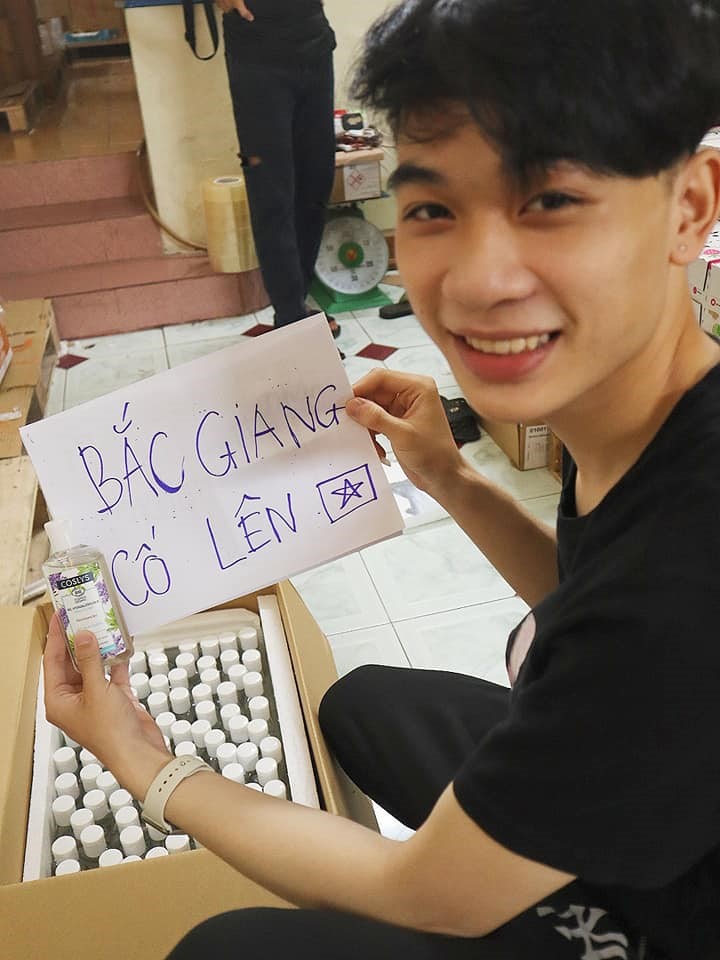 BẮC GIANG
CỐ LÊN
COSLYS